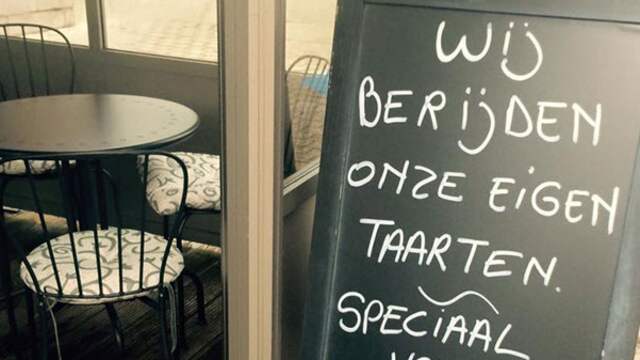 Wij
BERijDEN
ONZE EiGEN
TAARTEN.
SPECiAAL